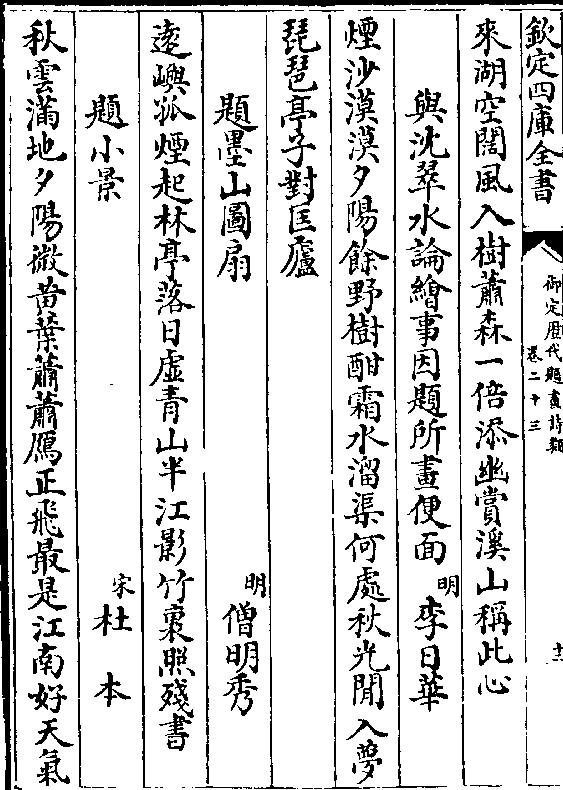 欽定四庫全書
御定歷代題畫詩類
卷二十三
十二
來湖空闊風入樹蕭森一倍添幽賞溪山稱此心
與沈翠水論繪事因題所畫便面 明 李日華
煙沙漠漠夕陽餘野樹酣霜水溜渠何處秋光閒入夢
琵琶亭子對匡廬
題墨山圖扇 明 僧明秀
遠嶼孤煙起林亭落日虛青山半江影竹裏照殘書
題小景 宋 杜本
秋雲滿地夕陽微黃葉蕭蕭鴈正飛最是江南好天氣